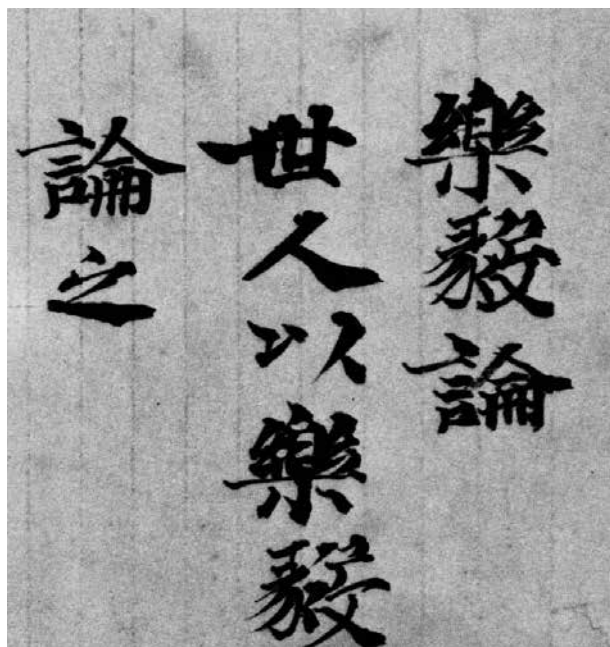 樂毅論
世人以樂毅
論之